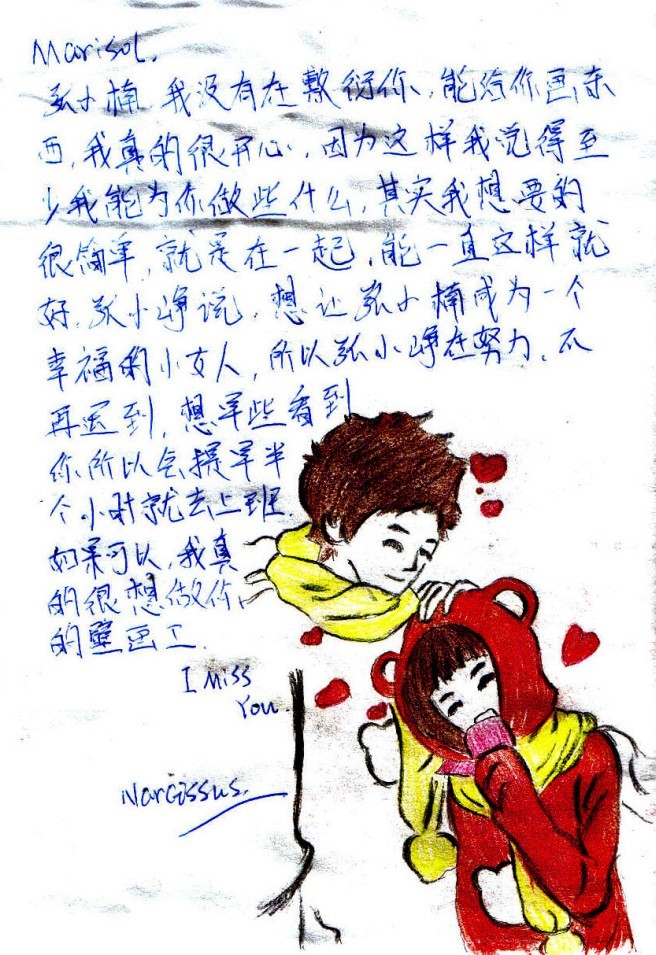 Marisol.
张小楠 我没有在敷衍你,能给你画东
西,我真的很开心,因为这样我觉得至
少我能为你做些什么,其实我想要的
很简单,就是在一起,能一直这样就
好,张小峥说,想让张小楠成为一个
幸福的小女人,所以张小峥在努力、不
再迟到,想早些看到
你所以会提早半
个小时就去上班.
如果可以,我真
的很想做你
的壁画工.
I Miss
You
Narcossus.